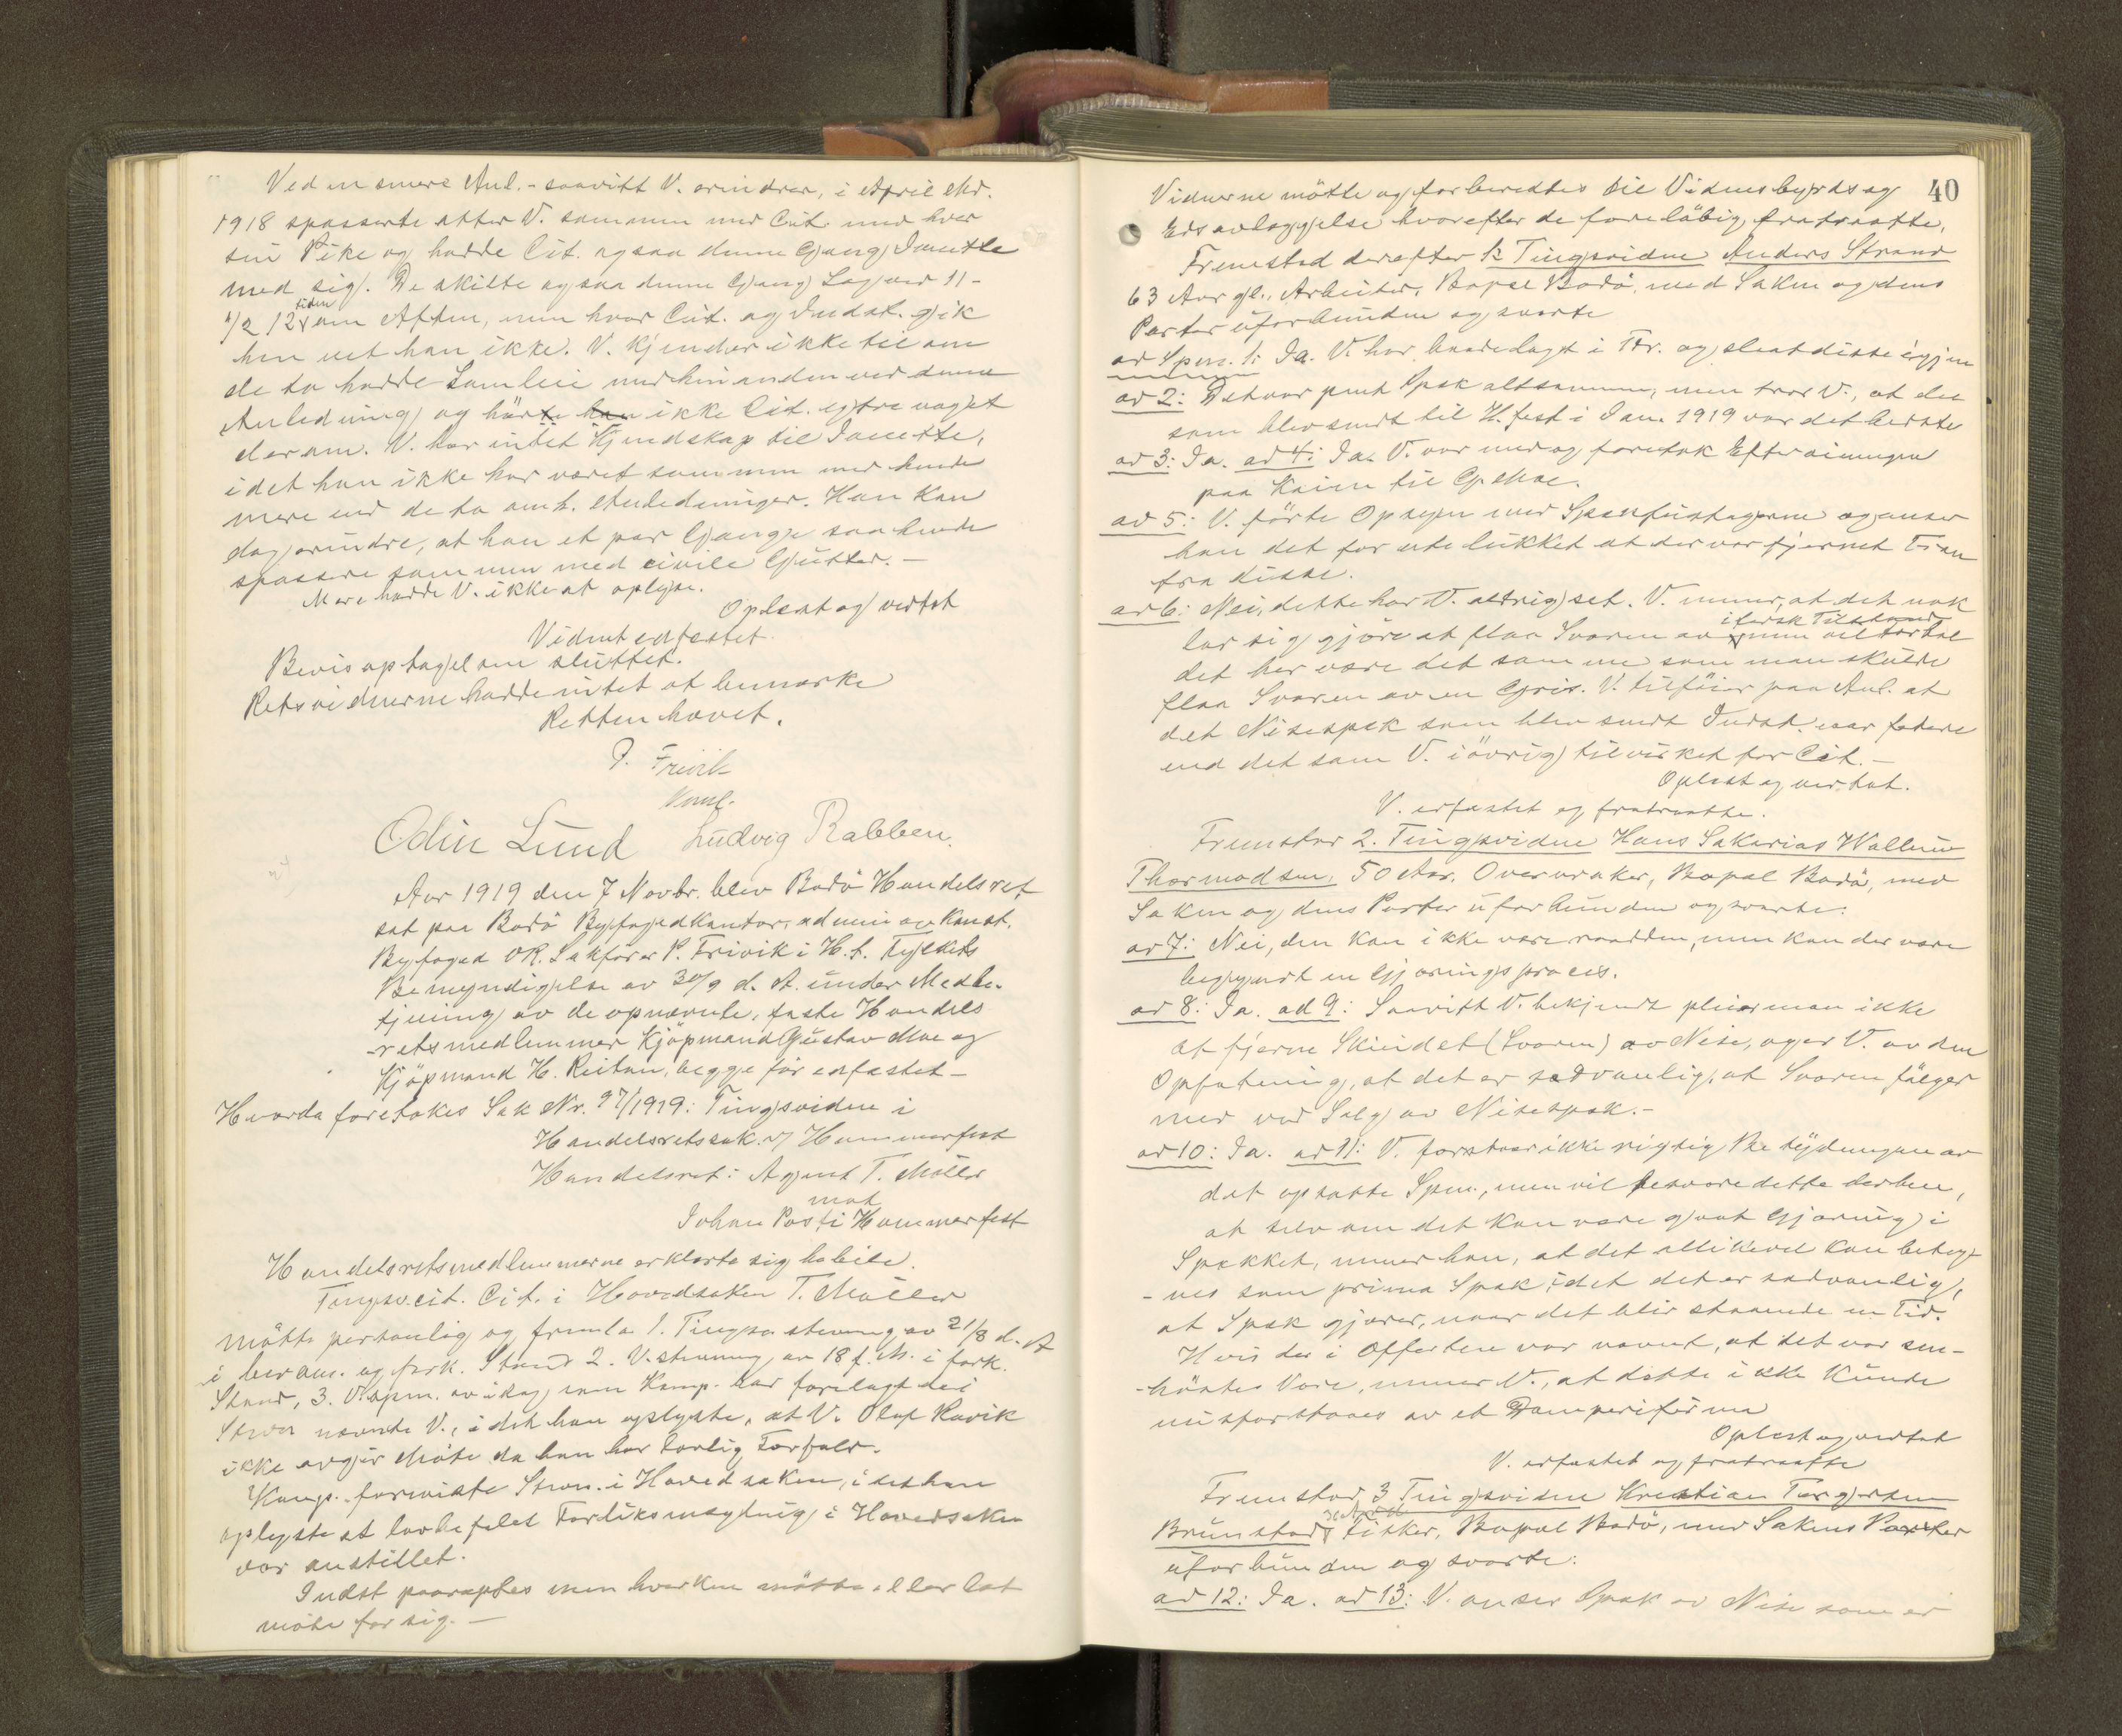 Ved en senere Anl. - saavitt V. erindrer, i April Md.
1918 spasserte atter V. sammen med Cit. med hver
sin Pike og hadde Cit. ogsaa denne Gang Janette
med sig. De skilte ogsaa denne Gang Lag ved 11-
1/2 12 tiden om Aften, men hvor Cit. og Indst. gik
hen vet han ikke. V. kjender ikke til om
de to hadde Samleie med hinanden ved denne
Anledning og hørte han ikke Cit. ytre noget
derom. V. har intet Kjendskap til Janette,
idet han ikke har været sammen med hende
mere end de to omh. Anledninger. Han kan
dog erindre, at han et par Gange saa hende
spassere sammen med civile Gutter. -
Mere hadde V. ikke at oplyse.
Oplæst og vedtat
Vidnet edfæstet.
Bevisoptagelsen sluttet.
Retsvidnerne hadde intet at bemærke
Retten hævet.
P. Frivik
Odin Lund Ludvig Rabben.
Aar 1919 den 7 Novbr. blev Bodö Handelsret
sat paa Bodö Byfogedkontor, admin av Konst.
Byfoged OR. Sakförer P. Frivik i H. t. Fylkets
Bemyndigelse av 30/9 d. A. under Medbe-
tjening av de opnævnte, faste Handels
-retsmedlemmer Kjöpmand Gustav Moe og
Kjöpmand H. Reitan, begge för edfæstet -
Hvorda foretokes Sak Nr. 97/1919: Tingsvidne i
Handelsretssak. v/ Hammerfest
Handelsret: Agent T. Möller
mot
Johan Post i Hammerfest
Handelsretsmedlemmerne erklærte sig habile.
Tingsv.cit. Cit. i Hovedsaken T. Möller
mötte personlig og fremla 1. Tingsv. stevning av 21/8 d. A
i beram. og fork. Stand 2. V. stevning av 18 f. M. i fork.
Stand, 3. V. spm. av idag, som Komp. har forelagt de i
Stevn nævnte V., idet han oplyste, at V. Olaf Ravik
ikke avgir Möte da han har lovlig Forfald.
Komp. foreviste Stevn. i Hovedsaken, idet han
oplyste at lovbefalet Forliksmægling i Hovedsaken
var anstillet.
Indst paaraabtes men hverken mötte eller lot
möte for sig. -
40
Vidnerne mötte og forberedtes til Vidnesbyrds og
Edsavlæggelse hvorefter de foreløbig fratraatte.
Fremstod derefter 1. Tingsvidne Anders Strand
63 Aar gl., Arbeider, Bopæl Bodö, med Saken og dens
Parter uforbunden og svarte
ad Spm. 1: Ja. V. har baade lagt i Tdr. og slaat disse igjen
ad 2: Det var pent Spæk altsammen, men tror V., at det
som blev sendt til H.fest i Jan. 1919 var det bedste
ad 3: Ja. ad 4: Ja. V. var med og foretok Efterveiningen
paa Kaien til G. Moe.
ad 5: V. förte Opsyn med Spækfustagerne og anser
han det for utelukket at der var fjernet Tran
fra disse.
ad 6: Nei, dette har V. aldrig set. V. mener, at det nok
i fersk Tilstand
lar sig gjöre at flaa Svoren av men vil fortol
det her være det samme som man skulde
flaa Svoren av en Gris. V. tilföier paa Anl. at
det Nisespæk som blev sendt Indst. var federe
end det som V. iövrig tilvirket for Cit. -
Oplæst og vedtat.
V. edfæstet og fratraatte.
Fremstod 2. Tingsvidne Hans Sakarias Wallum
Thormodsen, 50 Aar, Overvraker, Bopæl Bodö, med
Saken og dens Parter uforbunden og svarte:
ad 7: Nei, den kan ikke være raadden, men kan der være
begyndt en Gjæringsproces.
ad 8: Ja. ad 9: Saavitt V. bekjendt pleier man ikke
at fjerne Skindet (Svoren) av Nise, og er V. av den
Opfatning, at det er sedvanlig, at Svoren fölger
med ved Salg av Nisespæk. -
ad 10: Ja. ad 11: V. forstaar ikke rigtig Betydningen av
det opsatte Spm., men vil besvare dette derhen,
at selv om det kan være gaat Gjæring i
Spækket, mener han, at det allikevel kan beteg-
-nes som prima Spæk, idet det er sedvanlig,
at Spæk gjærer, naar det blir staaende en Tid.
Hvis der i Offerten var nævnt, at det var sen-
-höstes Vare, mener V., at dette ikke kunde
misforstaaes av et Damperifirma
Oplæst og vedtat
V. edfæstet og fratraatte
Fremstod 3 Tingsvidne Kristian Torgersen
Brunstad, Fisker, Bopæl Bodö, med Sakens Parter
uforbunden og svarte:
ad 12: Ja. ad 13: V. anser Spæk av Nise som er